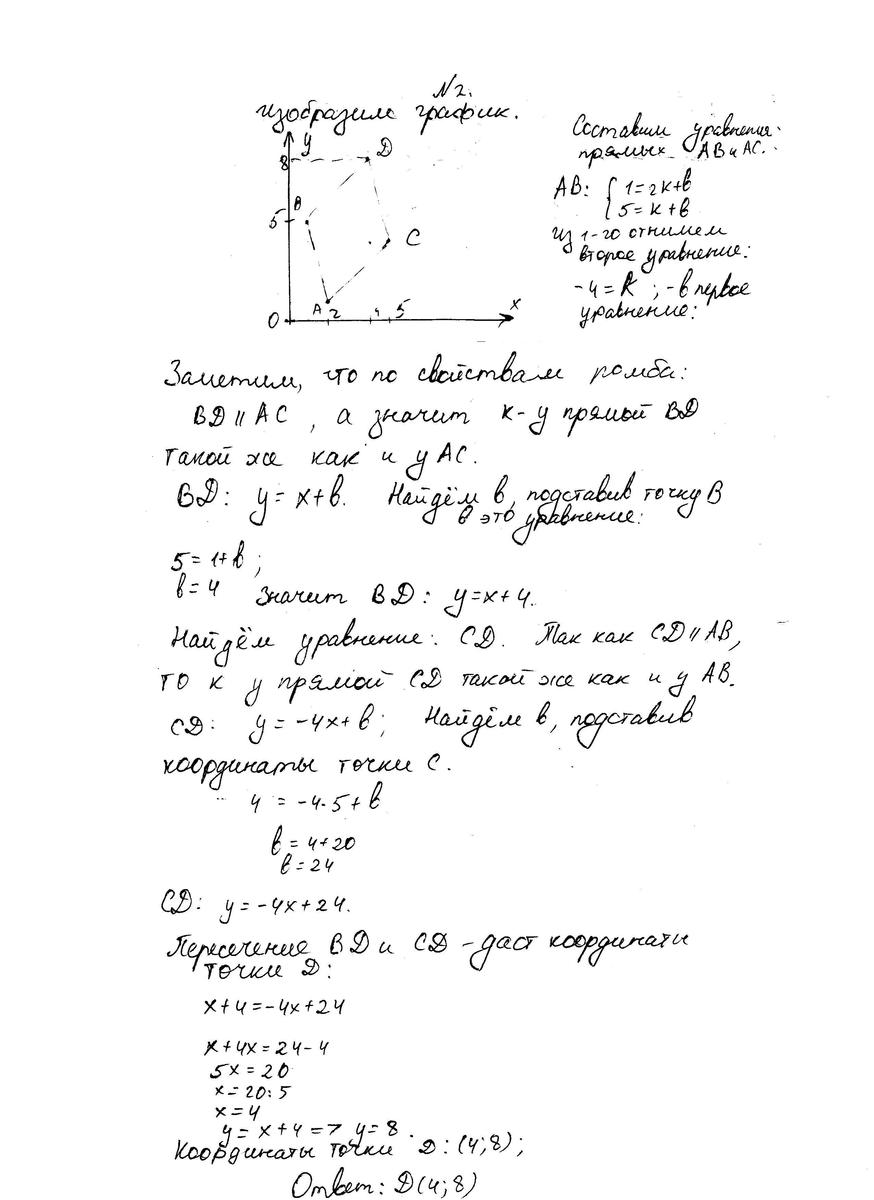 N2.
изобразила график.
y
8
D
B
5
C
A
2
4
5
x
0
Составим уравнения
прямых AB и AC.
AB: { 1=2к+в
5=к+в
Из 1-го отнимем
второе уравнение:
-4=k ; -в первое
уравнение:
Заметим, что по свойствам ромба:
BD ∥ AC , а значит к-у прямой BD
такой же как и у AC.
BD: y=x+в. Найдём в, подставив точку B
в это уравнение:
5=1+в ;
в=4 Значит BD: y=x+4.
Найдём уравнение: CD. Так как CD ∥ AB,
то к у прямой CD такой же как и у AB.
CD: y=-4x+в; Найдём в, подставив
координаты точки C.
4 = -4·5+в
в = 4+20
в=24
CD: y=-4x+24.
Пересечение BD и CD - даст координаты
точки D:
x+4=-4x+24
x+4x=24-4
5x=20
x=20:5
x=4
y=x+4 => y=8.
Координаты точки D: (4;8);
Ответ: D(4;8)